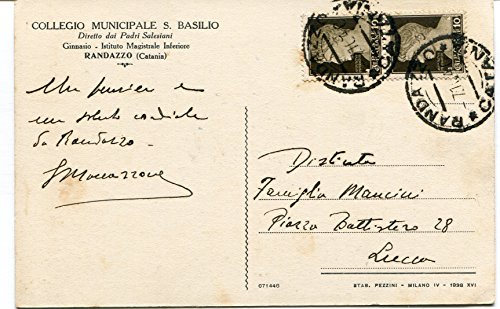 COLLEGIO MUNICIPALE S. BASILIO
Diretto dai Padri Salesiani
Ginnasio - Istituto Magistrale Inferiore
RANDAZZO (Catania)
Un pensiero e
un saluto cordiale
da Randazzo
RANDAZZO
CATANIA
Distinta
Famiglia Mancini
Piazza Battistero 28
Lucca
071446
STAB. PEZZINI - MILANO IV - 1938 XVI